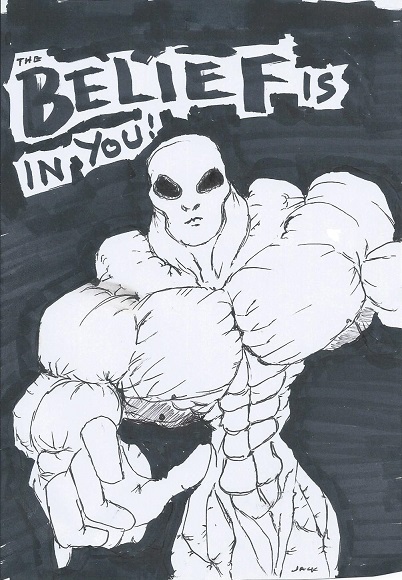 THE
BELIEF IS
IN YOU!
JACK